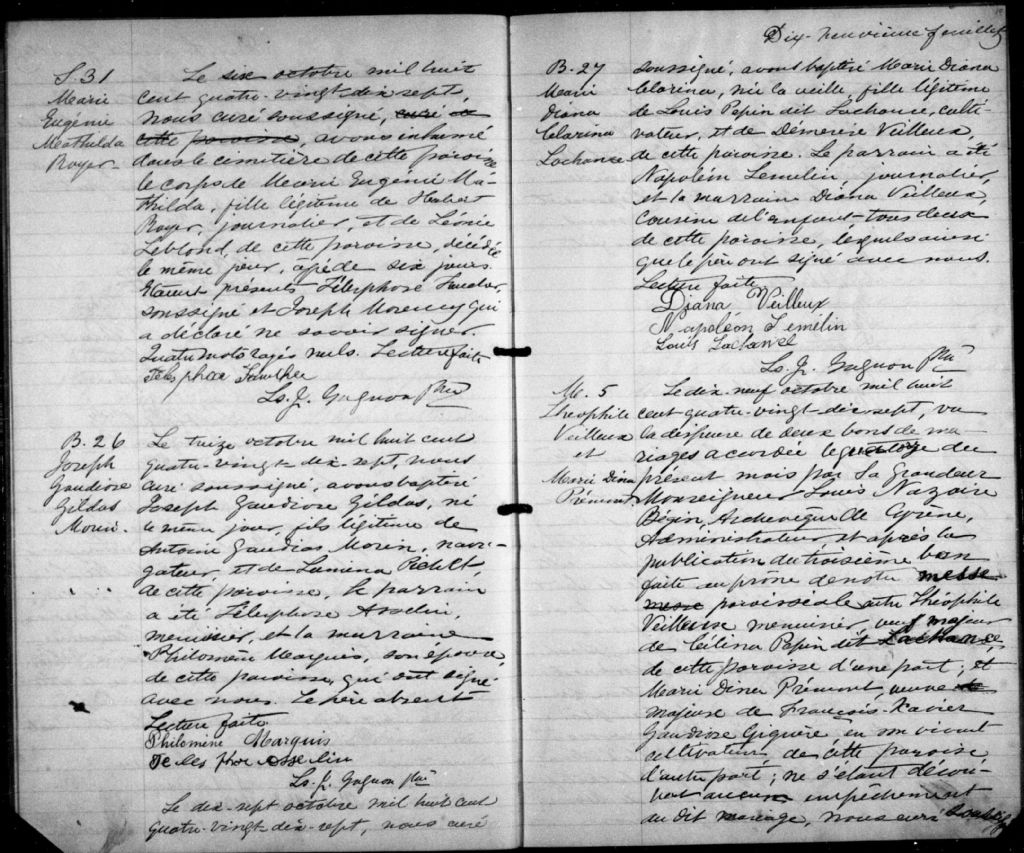 S. 31
Marie
Eugénie
Mathilda
Royer
Le six octobre mil huit
cent quatre-vingt-dix-sept,
nous curé soussigné, curé de
cette paroisse, avons inhumé
dans le cimetière de cette paroisse
le corps de Marie Eugénie Ma-
thilda, fille légitime de Herbert
Royer, journalier, et de Léonie
Leblond, de cette paroisse, décédée
le même jour, âgée de six jours.
Étaient présents Télesphore Faucher,
soussigné et Joseph Morency qui
a déclaré ne savoir signer.
Quatre mots rayés nuls. Lecture faite
Ls. J. Gagnon Ptre
B. 26
Joseph
Gaudiose
Gildas
Morin
Le treize octobre mil huit cent
quatre-vingt-dix-sept, nous
curé soussigné, avons baptisé
Joseph Gaudiose Gildas, né
le même jour, fils légitime de
Antoine Gaudias Morin, navi-
gateur, et de
de cette paroisse, le parrain
a été Télesphore Asselin,
menuisier, et la marraine
Philomène Marquis, son épouse,
de cette paroisse, qui ont signé
avec nous. Le père absent
Lecture faite
Philomène Marquis
Telesphor Asselin
Ls. J. Gagnon Ptre
Le dix-sept octobre mil huit cent
quatre-vingt-dix-sept, nous curé
Dix-neuvième feuillet
B. 27
Marie
Diana
Clarina
Lachance
soussigné, avons baptisé Marie Diana
Clarina, née la veille, fille légitime
de Louis Pepin dit Lachance, culti-
vateur, et de Demerise Veilleux,
de cette paroisse. Le parrain a été
Napoléon Lemelin journalier,
et la marraine Diana Veilleux,
cousine de l'enfant tous deux
de cette paroisse, lesquels ainsi
que le père ont signé avec nous.
Lecture faite
Diana Veilleux
Napoléon Lemelin
Louis Lachance
Ls. J. Gagnon Ptre
M. 5
Théophile
Veilleux
et
Marie Dina
Prémont
Le dix-neuf octobre mil huit
cent quatre-vingt-dix-sept, vu
la dispense de deux bans de ma-
riages accordée le quatorze du
présent mois par Sa Grandeur
Monseigneur Louis Nazaire
Bégin, Archevêque de Cyrène,
Administrateur et après la
publication du troisième ban
faite au prône de notre messe
messe paroissiale entre Théophile
Veilleux menuisier, veuf majeur
de Célina Pepin dit Lachance,
de cette paroisse d'une part; et
Marie Dina Prémont, veuve
majeure de François-Xavier
Gaudiose Giguère, en son vivant
cultivateur de cette paroisse
d'autre part; ne s'étant décou-
vert aucun empêchement
au dit mariage, nous curé soussigné